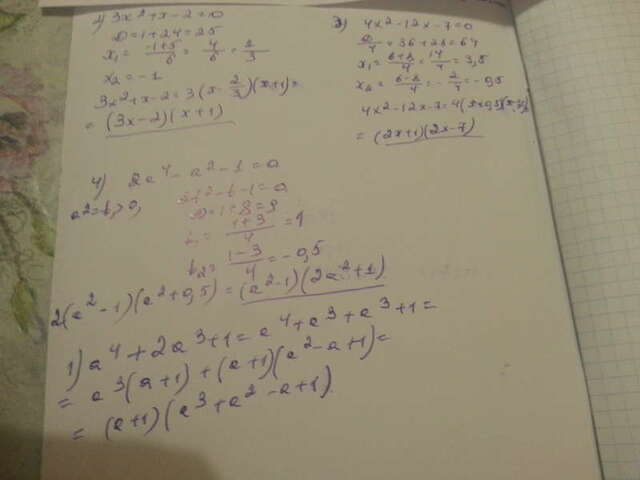 2) 3x² + x - 2 = 0
D = 1 + 24 = 25
x₁ = (-1+5)/6 = 4/6 = 2/3
x₂ = -1
3x² + x - 2 = 3(x - 2/3)(x+1) =
= (3x-2)(x+1)
3) 4x² - 12x - 7 = 0
D/4 = 36 + 28 = 64
x₁ = (6+8)/4 = 14/4 = 3,5
x₂ = (6-8)/4 = -2/4 = -0,5
4x² - 12x - 7 = 4(x+0,5)
= (2x+1)(2x-7)
4) 2a⁴ - a² - 1 = 0
a² = t, > 0,
2t² - t - 1 = 0
D = 1 + 8 = 9
t₁ = (1+3)/4 = 1
t₂ = (1-3)/4 = -0,5
2(a² - 1)(a² + 0,5) = (a²-1)(2a²+1)
1) a⁴ + 2a³ + 1 = a⁴ + a³ + a³ + 1 =
= a³(a+1) + (a+1)(a² - a + 1) =
= (a+1)(a³ + a² - a + 1)